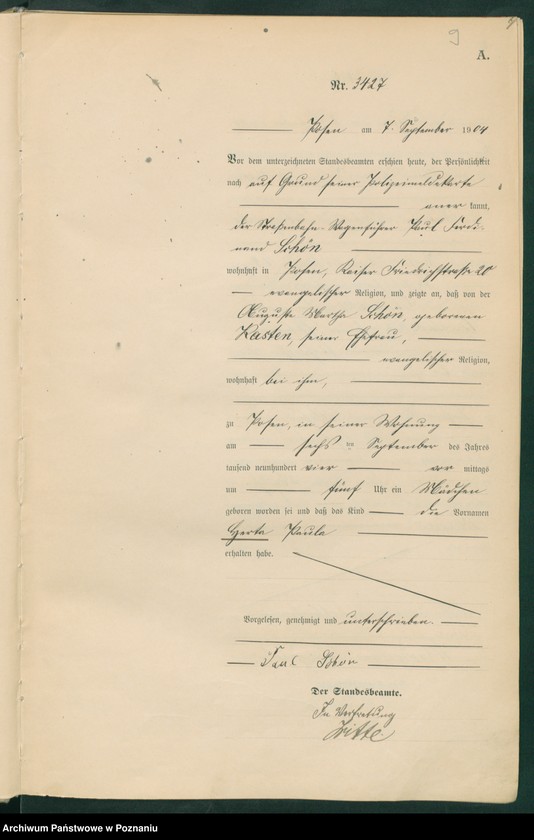 9
A.
Nr. 3427
Posen am 7. September 1904
Vor dem unterzeichneten Standesbeamten erschien heute, der Persönlichkeit
nach auf Grund seiner Polizeimeldekarte
aner kannt,
der Straßenbahn-Wagenführer Paul Ferdi-
nand Schön
wohnhaft in Posen, Kaiser Friedrichstraße 20
evangelischer Religion, und zeigte an, daß von der
Auguste Martha Schön, geborenen
Kasten, seiner Ehefrau,
evangelischer Religion,
wohnhaft bei ihm,
zu Posen, in seiner Wohnung
am sechs ten September des Jahres
tausend neunhundert vier vor mittags
um fünf Uhr ein Mädchen
geboren worden sei und daß das Kind die Vornamen
Herta Paula
erhalten habe.
Vorgelesen, genehmigt und unterschrieben.
Paul Schön
Der Standesbeamte.
In Vertretung
Archiwum Państwowe w Poznaniu